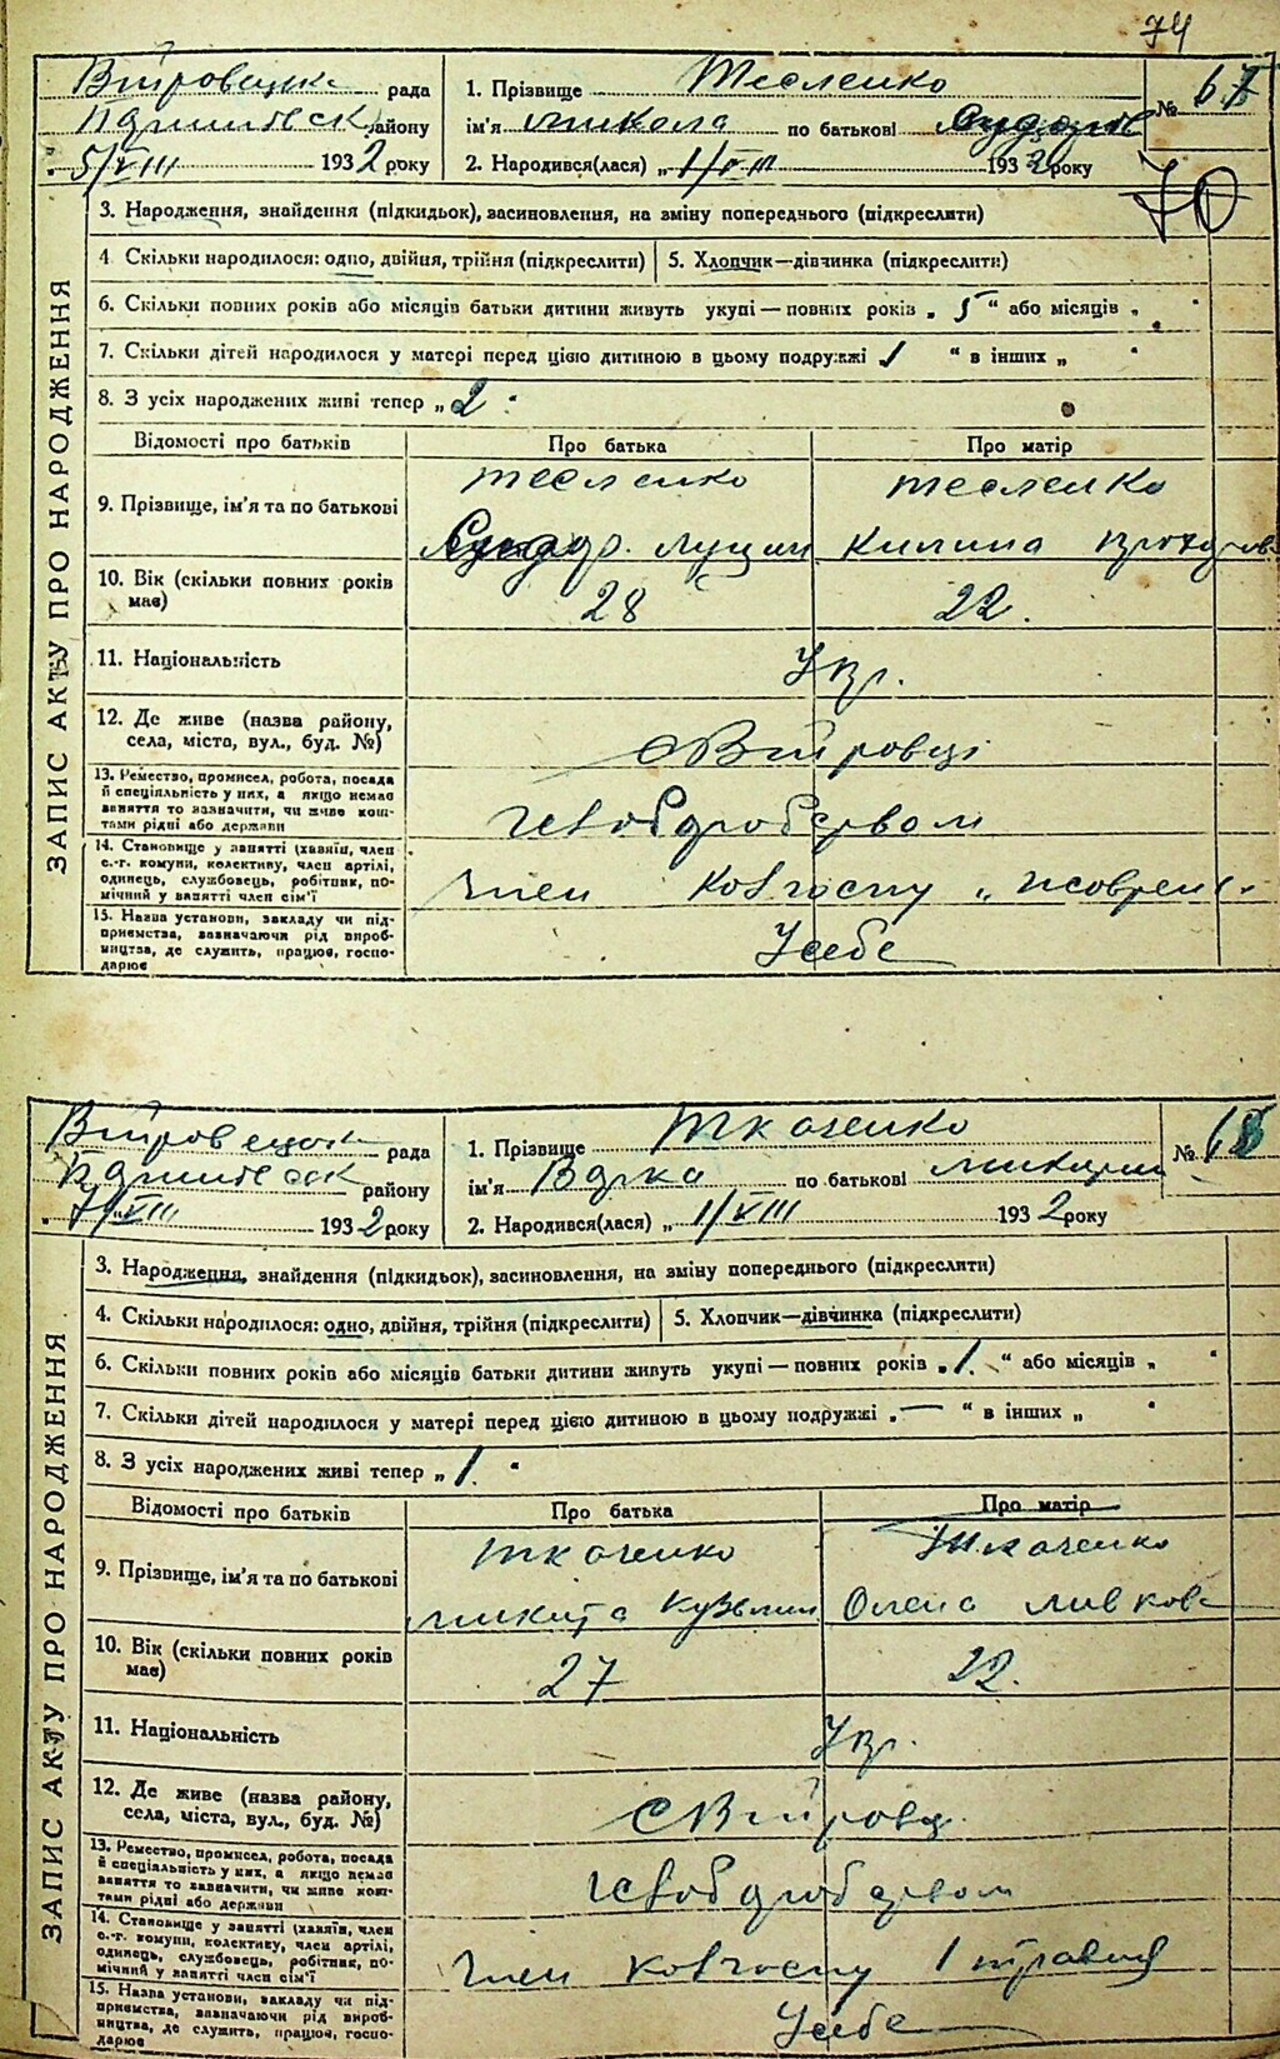 74
Війтовецька рада
району
5/VIII 1932 року
1. Прізвище Тесленко
ім'я Микола по батькові
2. Народився(лася) „ 1/VIII 1932 року
№ 67
70
ЗАПИС АКТУ ПРО НАРОДЖЕННЯ
3. Народження, знайдення (підкидьок), засиновлення, на зміну попереднього (підкреслити)
4. Скільки народилося: одно, двійня, трійня (підкреслити) 5. Хлопчик—дівчинка (підкреслити)
6. Скільки повних років або місяців батьки дитини живуть укупі — повних років „ 5 “ або місяців „ “
7. Скільки дітей народилося у матері перед цією дитиною в цьому подружжі 1 “ в інших „ “
8. З усіх народжених живі тепер „ 2 “
Відомості про батьків Про батька Про матір
9. Прізвище, ім'я та по батькові
Тесленко Тесленко
Килина
10. Вік (скільки повних років має) 28 22.
11. Національність Укр.
12. Де живе (назва району, села, міста, вул., буд. №)
13. Ремество, промисел, робота, посада й спеціяльність у них, а якщо немає заняття то зазначити, чи живе коштами рідні або держави
хліборобством
14. Становище у занятті (хазяїн, член с.-г. комуни, колективу, член артілі, одинець, службовець, робітник, помічний у занятті член сім'ї
член колгоспу
15. Назва установи, закладу чи підприємства, зазначаючи рід виробництва, де служить, працює, господарює
У себе
рада
району
7/VIII 1932 року
1. Прізвище Ткаченко
ім'я Варка по батькові
2. Народився(лася) „ 1/VIII 1932 року
№ 68
ЗАПИС АКТУ ПРО НАРОДЖЕННЯ
3. Народження, знайдення (підкидьок), засиновлення, на зміну попереднього (підкреслити)
4. Скільки народилося: одно, двійня, трійня (підкреслити) 5. Хлопчик—дівчинка (підкреслити)
6. Скільки повних років або місяців батьки дитини живуть укупі — повних років „ 1. “ або місяців „ “
7. Скільки дітей народилося у матері перед цією дитиною в цьому подружжі „ — “ в інших „ “
8. З усіх народжених живі тепер „ 1. “
Відомості про батьків Про батька Про матір
9. Прізвище, ім'я та по батькові
Ткаченко Ткаченко
Микита Кузьмич Олена
10. Вік (скільки повних років має) 27 22.
11. Національність Укр.
12. Де живе (назва району, села, міста, вул., буд. №)
13. Ремество, промисел, робота, посада й спеціяльність у них, а якщо немає заняття то зазначити, чи живе коштами рідні або держави
хліборобством
14. Становище у занятті (хазяїн, член с.-г. комуни, колективу, член артілі, одинець, службовець, робітник, помічний у занятті член сім'ї
член колгоспу 1 травня
15. Назва установи, закладу чи підприємства, зазначаючи рід виробництва, де служить, працює, господарює
У себе